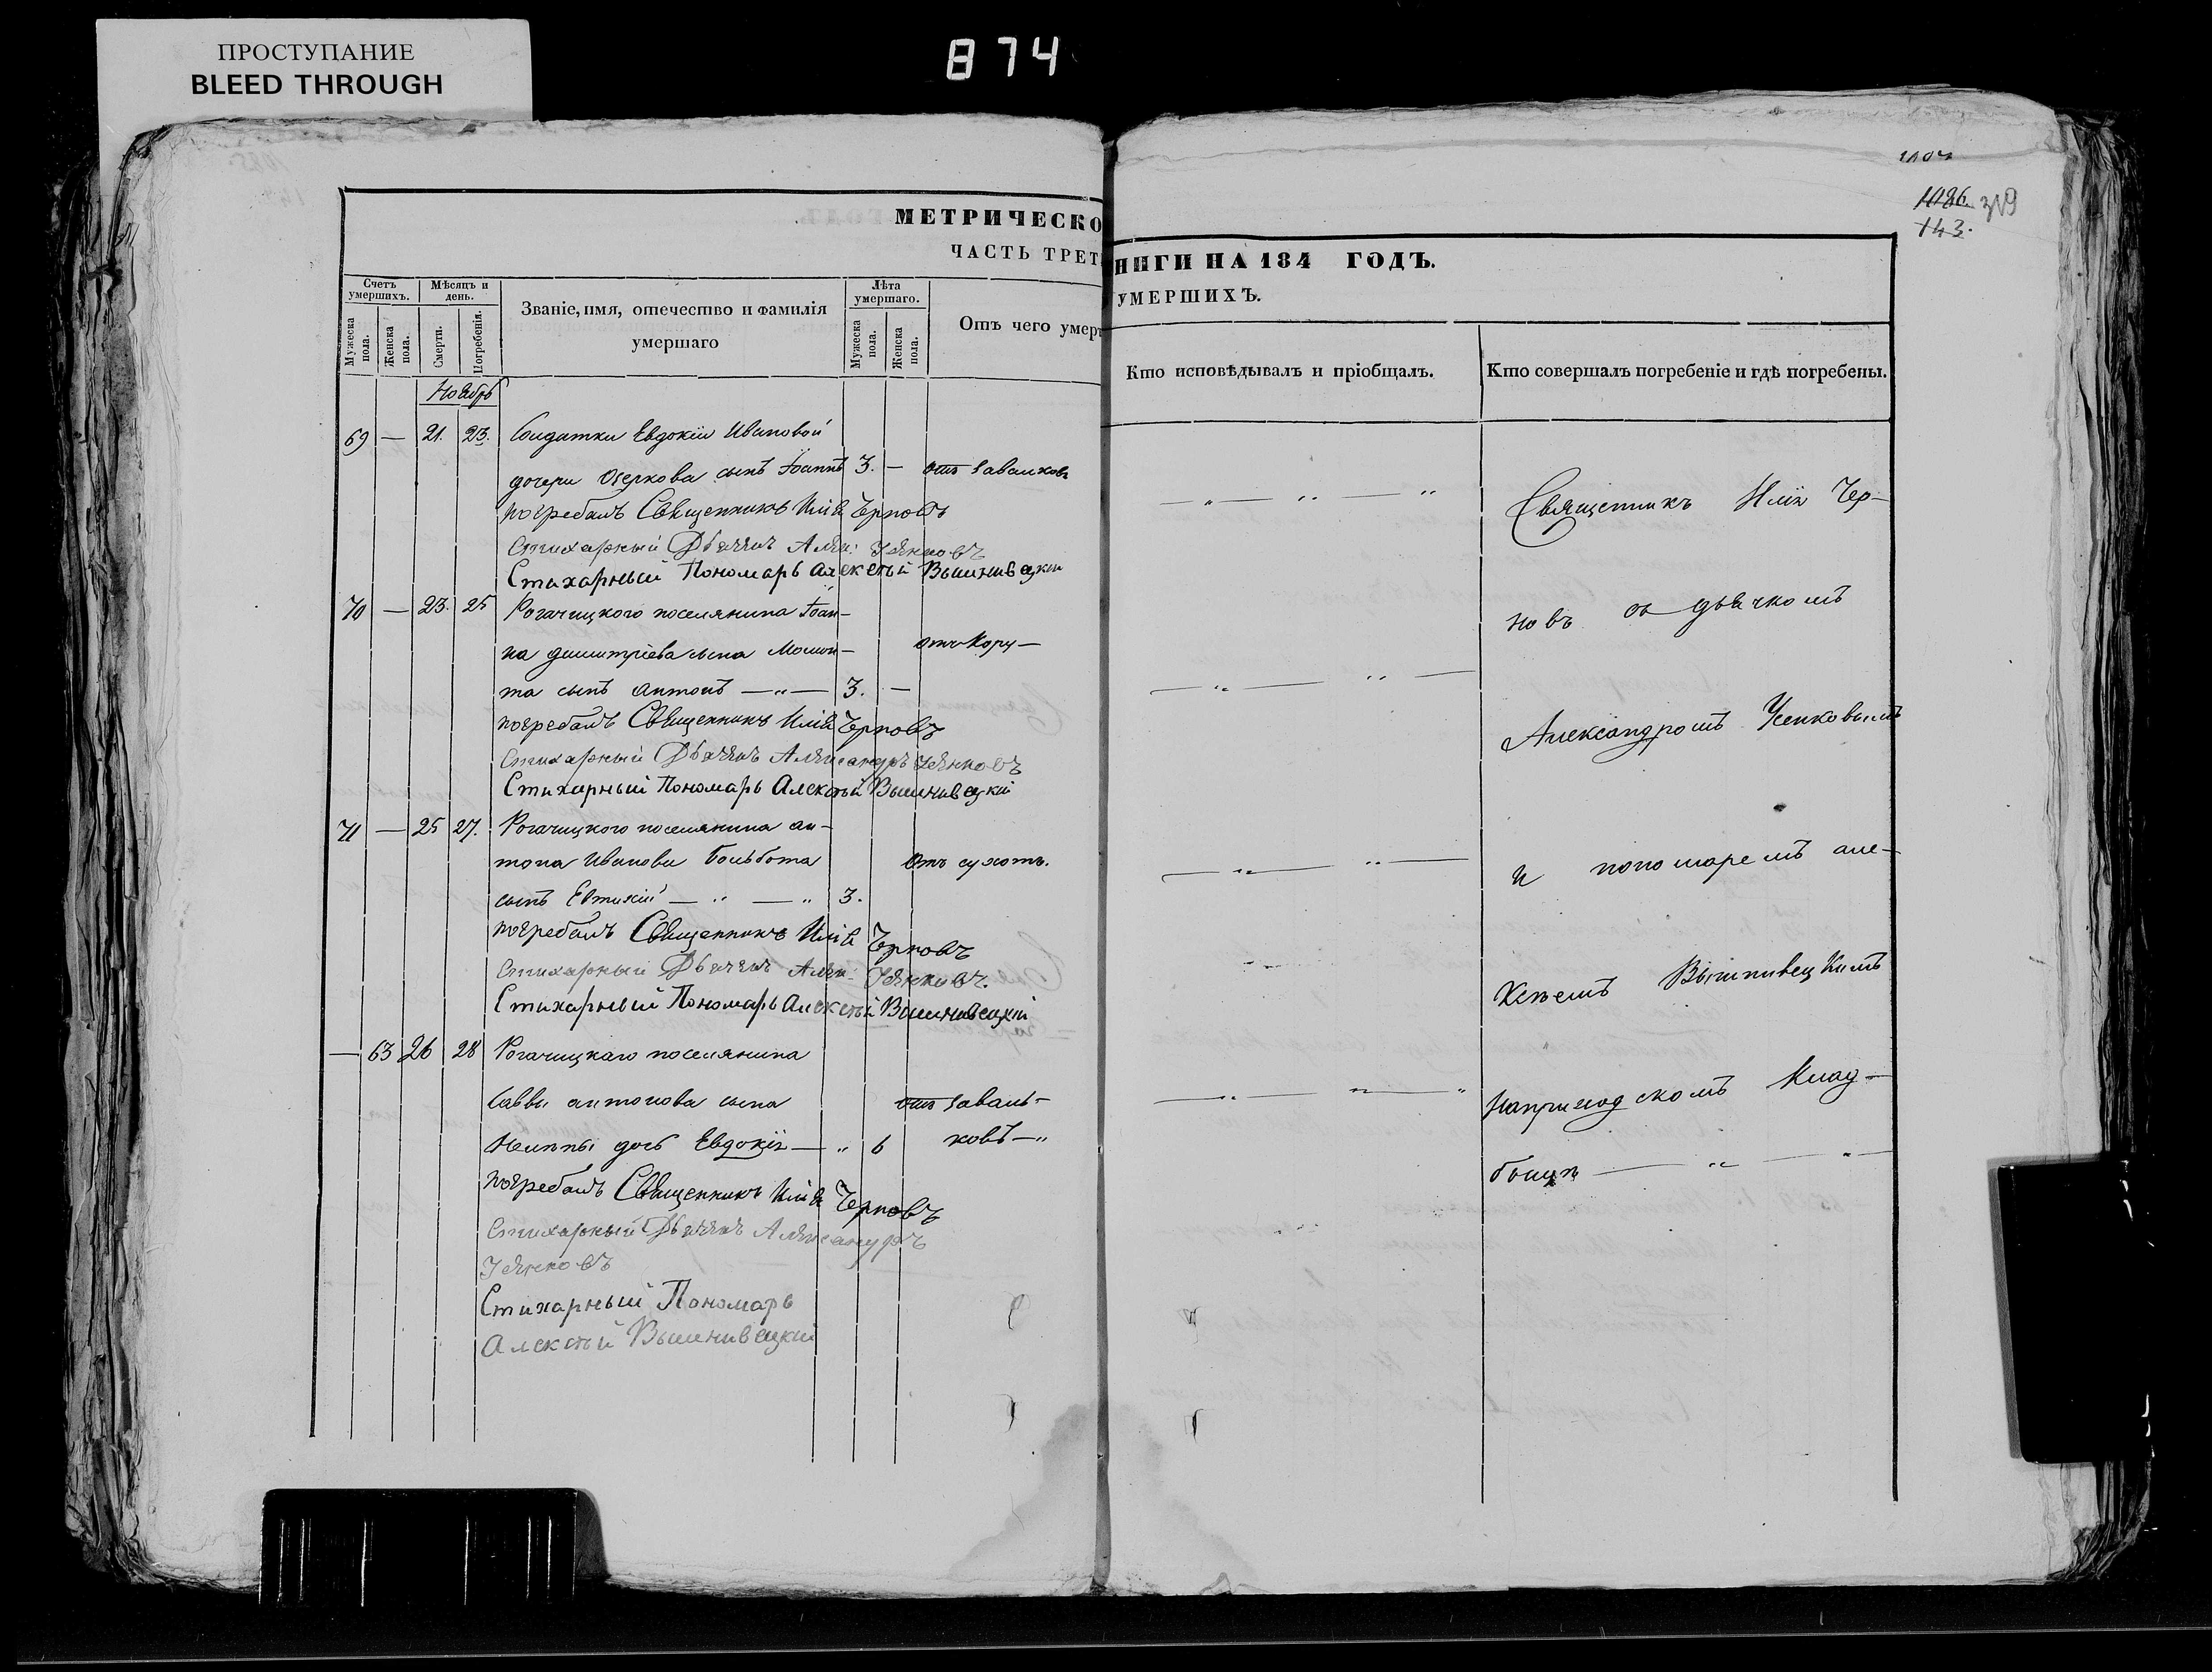 ПРОСТУПАНИЕ
BLEED THROUGH
874
1086. 319
143.
МЕТРИЧЕСКО
ЧАСТЬ ТРЕТ
Счетъ умершихъ.
Мѣсяцъ и день.
Званіе, имя, отечество и фамилія умершаго
Лѣта умершаго.
Отъ чего умер
Мужеска пола.
Женска пола.
Смерти.
Погребенія.
Мужеска пола.
Женска пола.
Ноябрь
69 — 21. 23. Солдатки Евдокіи Ивановой
дочери Озеркова сынъ Іоаннъ 3. — отъ завалковъ
погребалъ Священникъ Илія Черновъ
Стихарный Дьячекъ Алек: Усенковъ
Стихарный Пономарь Алексѣй Вышнивецкій
70 — 23. 25 Рогачицкого поселянина Іоан-
на Димитріева сына Момон- отъ Кору —
та сынъ Антонъ — „ — 3. —
погребалъ Священникъ Илія Черновъ
Стихарный Дьячекъ Александръ Усенковъ
Стихарный Пономарь Алексѣй Вышнивецкій
71 — 25 27. Рогачицкого поселянина ан-
тона Иванова Больбота отъ сухотъ.
сынъ Евтихій — „ — „ 3.
погребалъ Священникъ Илія Черновъ
Стихарный Дьячекъ Алек: Усенковъ.
Стихарный Пономарь Алексѣй Вышнивецкій
— 63 26 28 Рогачицкаго поселянина
Саввы антонова сына отъ заваль-
дочь Евдокія — „ 6 ковъ — „
погребалъ Священникъ Илія Черновъ
Стихарный Дьячекъ Александръ
Усенковъ
Стихарный Пономарь
Алексѣй Вышнивецкій
НИГИ НА 184 ГОДЪ.
УМЕРШИХЪ.
Кто исповѣдывалъ и пріобщалъ.
Кто совершалъ погребеніе и гдѣ погребены.
Священникъ Илія Чер-
новъ съ дьячкомъ
Александромъ Усенковымъ
и пономаремъ але-
ксѣемъ Вышнивецкимъ
на приходскомъ Клад-
бищѣ — „ — „